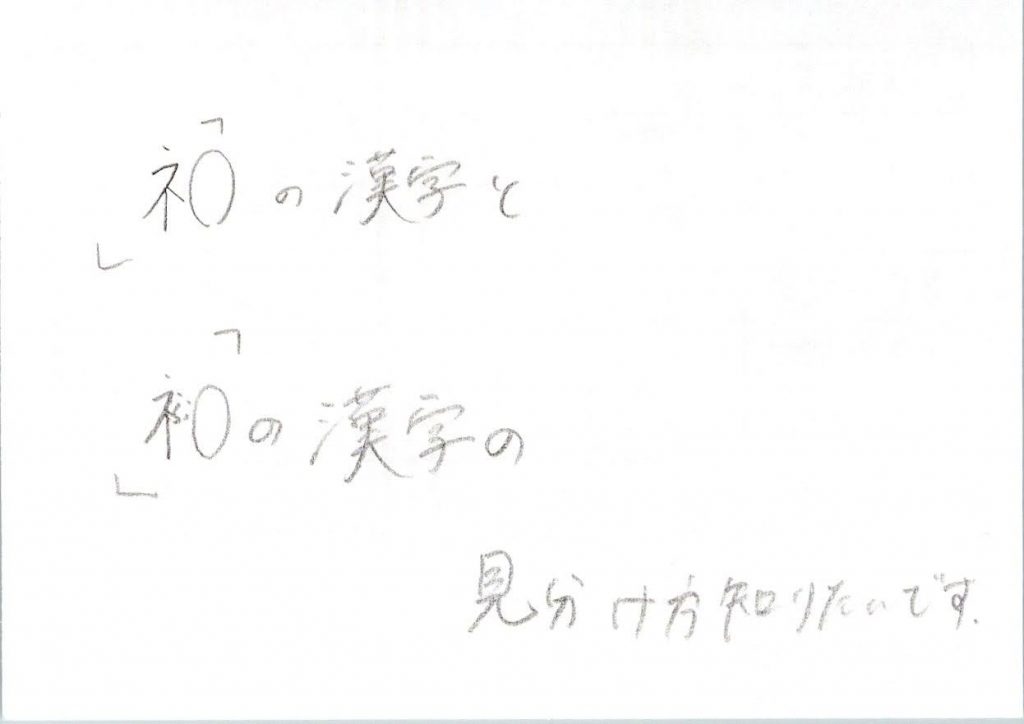 「ネ〇」の漢字と
「衤〇」の漢字の
見分け方知りたいです.